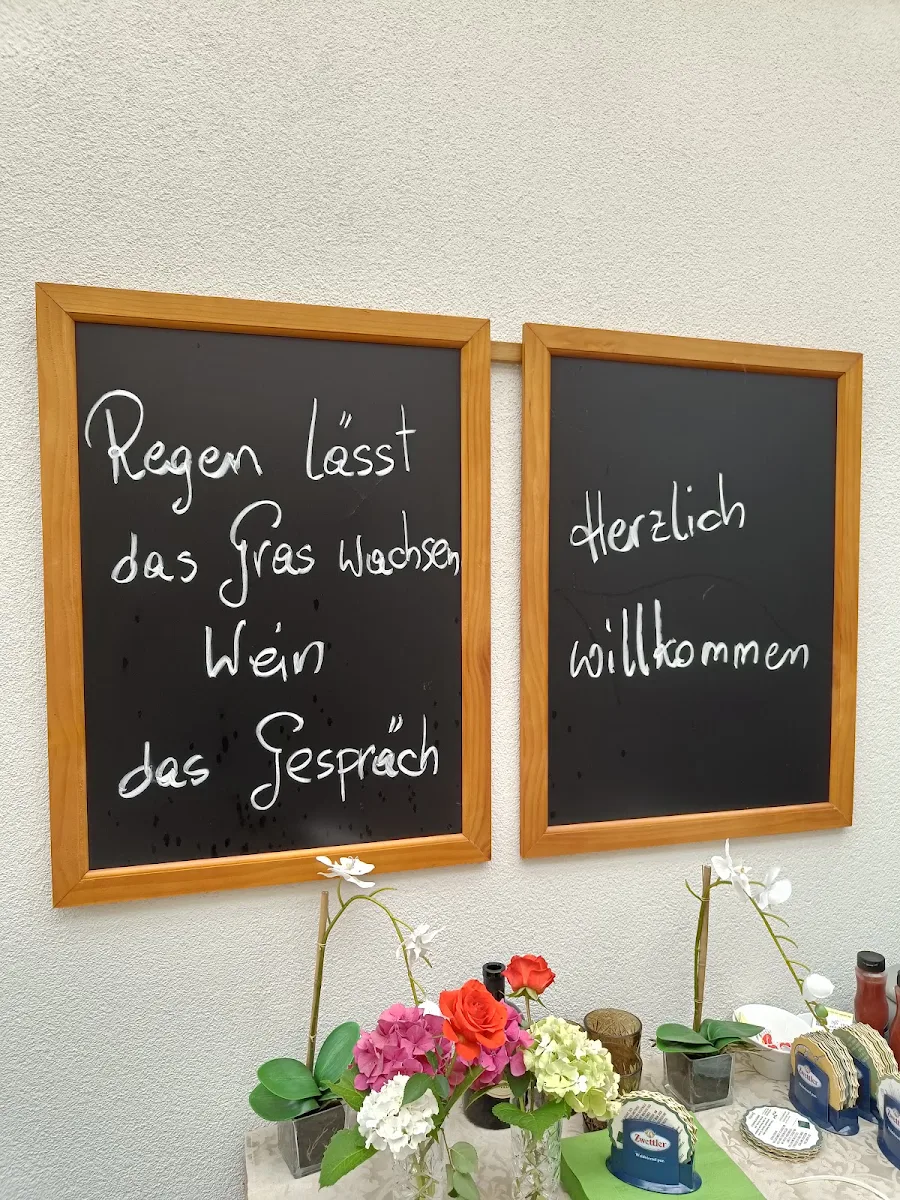 Regen lässt
das Gras wachsen
Wein
das Gespräch
Herzlich
willkommen
Zwettler